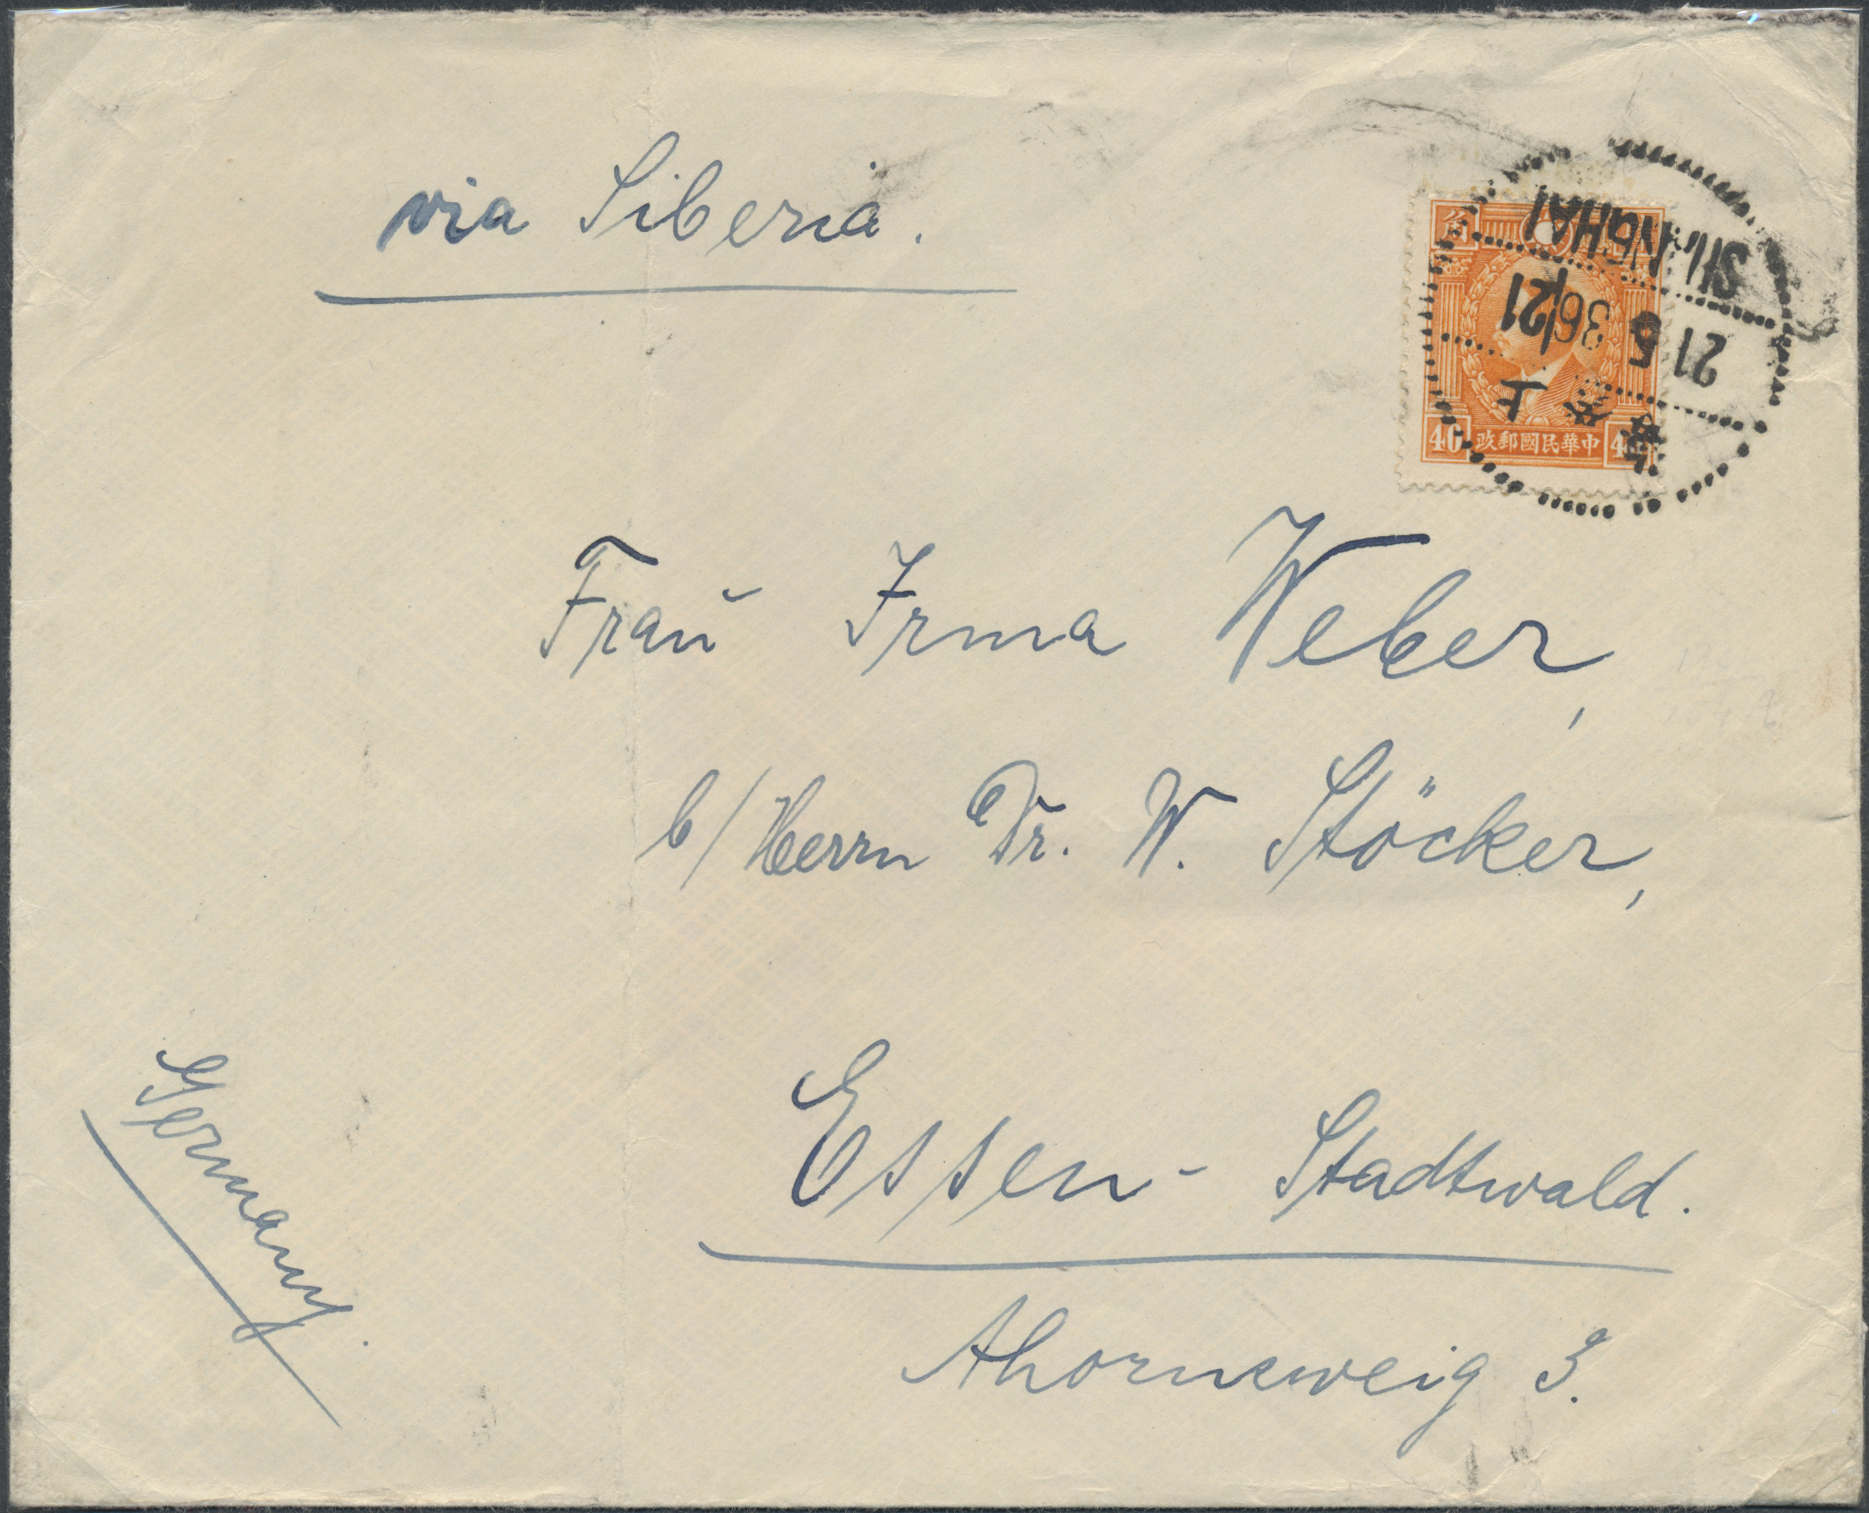 via Siberia.
SHANGHAI
21 5
36/21
上海
40 中華民國郵政 40
Fraŭ Irma Weber,
b/Herrn Dr. W. Stöcker,
Essen-Stadtwald.
Ahornzweig 3.
Germany.